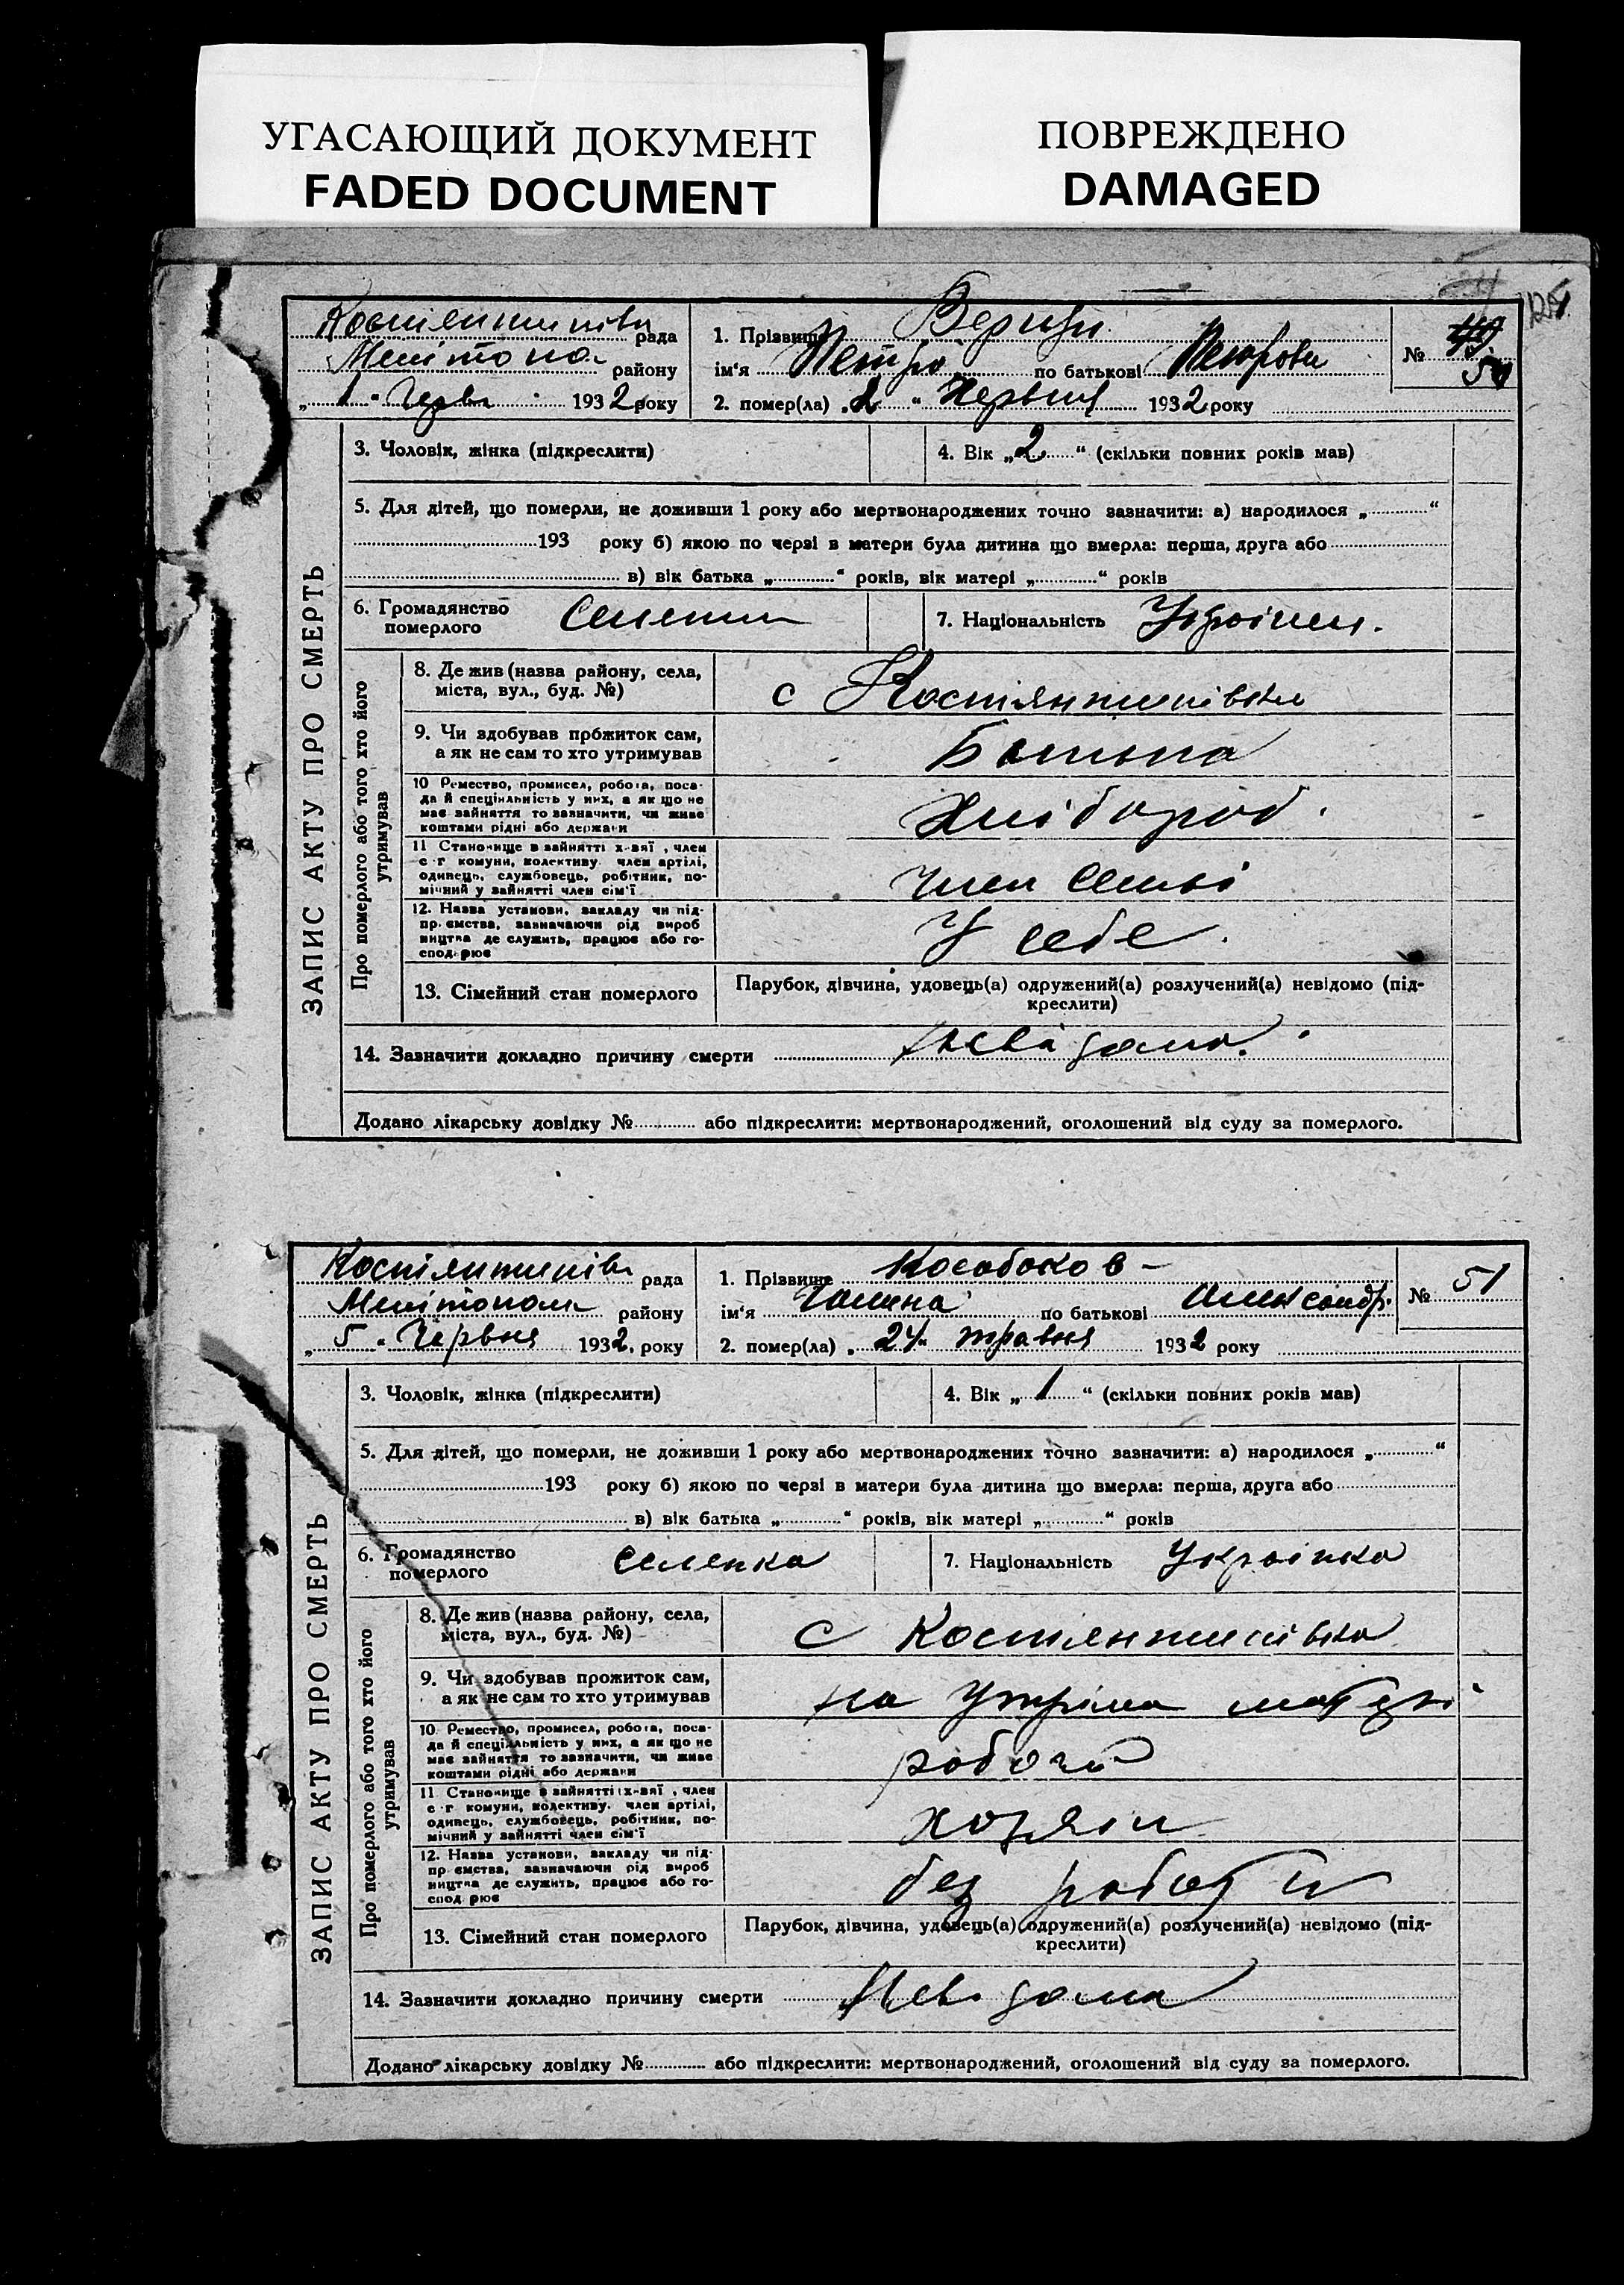 УГАСАЮЩИЙ ДОКУМЕНТ
FADED DOCUMENT
ПОВРЕЖДЕНО
DAMAGED
Костянтинівк рада
Мелітопол району
„ 1 “ Черв 1932 року
1. Прізвище
ім'я Петро по батькові Петрови
2. помер(ла) „ “ Червня 1932 року
№ 49 50
ЗАПИС АКТУ ПРО СМЕРТЬ
3. Чоловік, жінка (підкреслити)
4. Вік „ 2 “ (скільки повних років мав)
5. Для дітей, що померли, не доживши 1 року або мертвонароджених точно зазначити: а) народилося „ “
193 року б) якою по черзі в матери була дитина що вмерла: перша, друга або
в) вік батька „ “ років, вік матері „ “ років
6. Громадянство
померлого
Селянин
7. Національність Україн.
Про померлого або того хто його
утримував
8. Де жив (назва району, села,
міста, вул., буд. №)
с Костянтинівка
9. Чи здобував прожиток сам,
а як не сам то хто утримував
Батько
10 Ремество, промисел, робота, поса-
да й спеціяльність у них, а як що не
має зайняття то зазначити, чи живе
коштами рідні або держави
Хлібороб.
11 Становище в зайнятті х-вяї, член
с-г комуни, колективу член артілі,
одинець, службовець, робітник, по-
мічний у зайнятті член сім'ї
член семьї
12. Назва установи, закладу чи під-
пр.ємства, зазначаючи рід вироб
ництва де служить, працює або го-
сподарює
У себе.
13. Сімейний стан померлого
Парубок, дівчина, удовець(а) одружений(а) розлучений(а) невідомо (під-
креслити)
14. Зазначити докладно причину смерти невідома.
Додано лікарську довідку № або підкреслити: мертвонароджений, оголошений від суду за померлого.
Костянтинівк рада
Мелітопол району
„ 5 “ Червня 1932, року
1. Прізвище Кособоков
ім'я Галина по батькові Александр.
2. помер(ла) „ 24 “ травня 1932 року
№ 51
ЗАПИС АКТУ ПРО СМЕРТЬ
3. Чоловік, жінка (підкреслити)
4. Вік „ 1 “ (скільки повних років мав)
5. Для дітей, що померли, не доживши 1 року або мертвонароджених точно зазначити: а) народилося „ “
193 року б) якою по черзі в матери була дитина що вмерла: перша, друга або
в) вік батька „ “ років, вік матері „ “ років
6. Громадянство
померлого
Селянка
7. Національність Українка
Про померлого або того хто його
утримував
8. Де жив (назва району, села,
міста, вул., буд. №)
с Костянтинівка
9. Чи здобував прожиток сам,
а як не сам то хто утримував
на утріма
10. Ремество, промисел, робота, поса-
да й спеціяльність у них, а як що не
має зайняття то зазначити, чи живе
коштами рідні або держави
робочи
11 Становище в зайнятті х-вяї, член
с-г комуни, колективу. член артілі,
одинець, службовець, робітник, по-
мічний у зайнятті член сім'ї
хозяін
12. Назва установи, закладу чи під-
пр ємства, зазначаючи рід вироб
ництва де служить, працює або го-
сподарює
без роботи
13. Сімейний стан померлого
Парубок, дівчина, удовець(а) одружений(а) розлучений(а) невідомо (під-
креслити)
14. Зазначити докладно причину смерти Невідома
Додано лікарську довідку № або підкреслити: мертвонароджений, оголошений від суду за померлого.